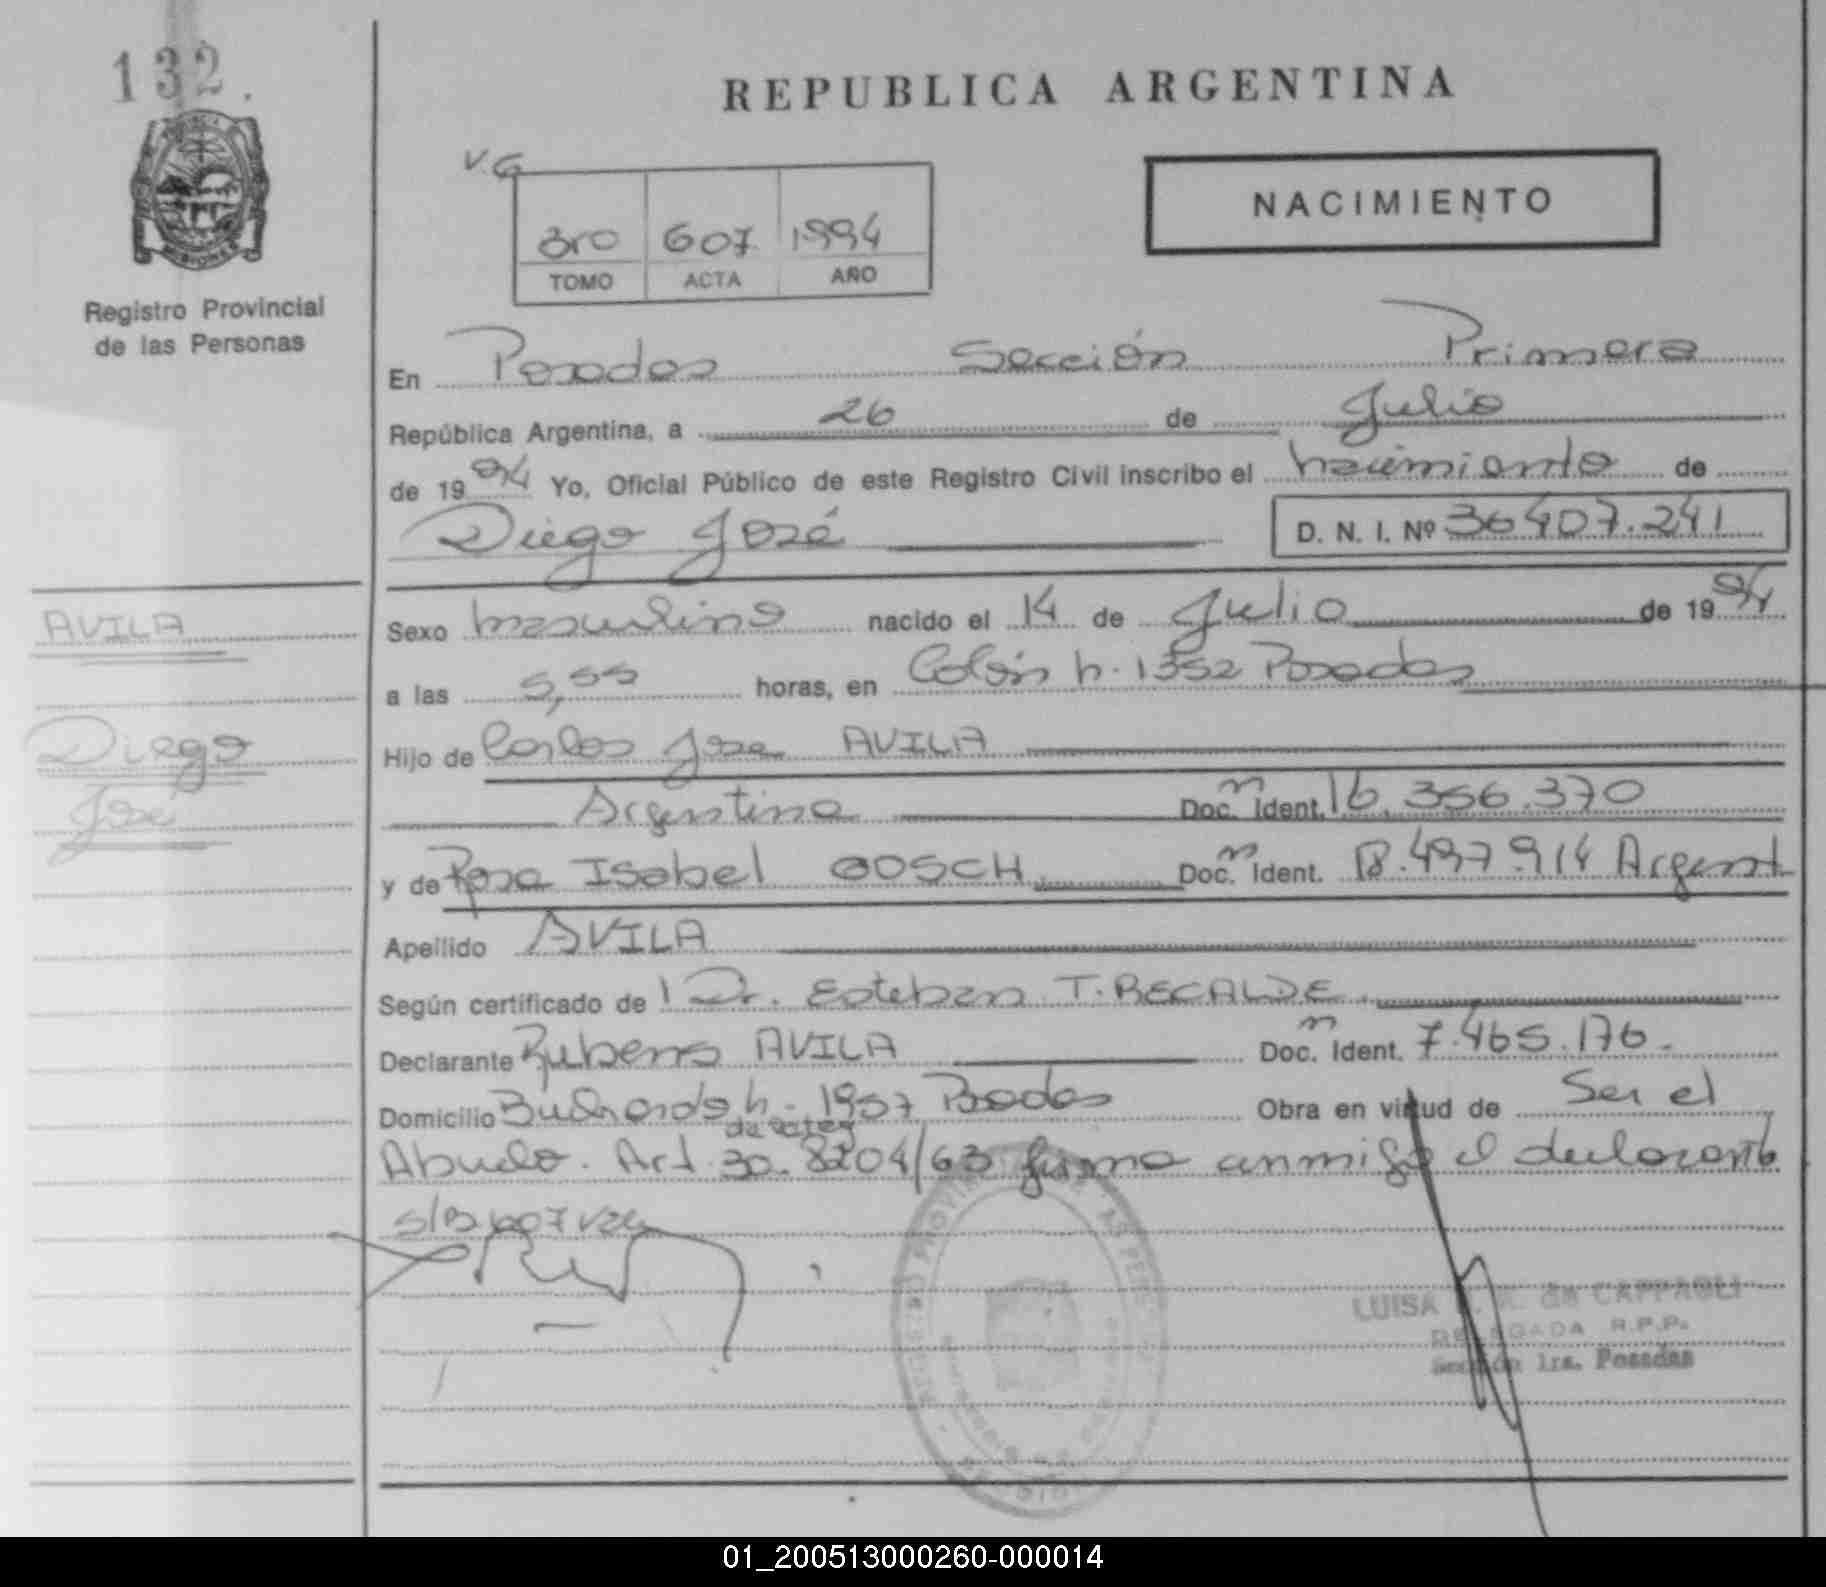 132.
REPUBLICA ARGENTINA
V.G
NACIMIENTO
3ro 607 1994
TOMO ACTA AÑO
Registro Provincial
de las Personas
En Posadas Sección Primera
República Argentina, a 26 de Julio
de 1994 Yo, Oficial Público de este Registro Civil inscribo el nacimiento de
Diego José D. N. I. Nº 36407.241
AVILA
Sexo masculino nacido el 14 de Julio de 1994
a las 5,55 horas, en Colón n. 1352 Posadas
Diego
Hijo de Carlos Jose AVILA
José
Argentino Doc. Ident. 16.356.370
y de Rosa Isabel GOSCH Doc. Ident. 18.497.914 Argent
Apellido AVILA
Según certificado de Dr. Esteban T. RECALDE
Declarante Rubens AVILA Doc. Ident. 7.465.176.
Domicilio n. 1957 Posadas Obra en virtud de Ser el
Abuelo. Art. 30. 8204/63 firma conmigo el declarante
LUISA de CAPPAGLI
DELEGADA R.P.P.
Sección 1ra. Posadas
01_200513000260-000014